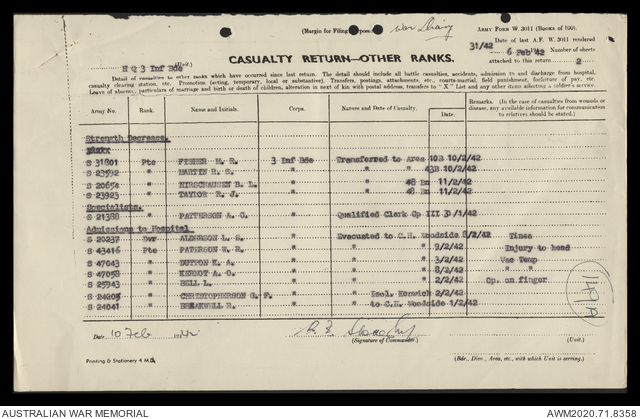 War Diary
(Margin for Filing Purposes)
ARMY FORM W. 3011 (Books of 100).
31/42
Date of last A.F. W. 3011 rendered
6 Feb '42
Number of sheets
attached to this return 2
H Q 3 Inf Bde (Unit.)
CASUALTY RETURN—OTHER RANKS.
Detail of casualties to other ranks which have occurred since last return. The detail should include all battle casualties, accidents, admission to and discharge from hospital,
casualty clearing station, etc. Promotion (acting, temporary, local or substantive). Transfers, postings, attachments, etc., courts-martial, field punishment, forfeiture of pay, etc.
Leave of absence, particulars of marriage and birth or death of children, alteration in next of kin with postal address, transfers to "X" List and any other items affecting a soldier's service.
Army No. Rank. Name and Initials. Corps. Nature and Date of Casualty. Date. Remarks. (In the case of casualties from wounds or disease, any available information for communication to relatives should be stated.)
Strength Decrease.
S 31801 Pte FISHER M. R. 3 Inf Bde Transferred to Area 10B 10/2/42
S 23592 " MARTIN R. S. " " 43B 10/2/42
S 20654 " HIRSCHAUSEN B. L. " " 48 Bn 11/2/42
S 23923 " TAYLOR R. J. " " 48 Bn 11/2/42
Specialists.
S 21388 " PATTERSON A. C. " Qualified Clerk Gp III /1/42
Admissions to Hospital
S 20237 Dvr ALDERSON L. S. " Evacuated to C.H. Woodside 8/2/42 Tinea
S 43416 Pte PATERSON W. R. " " 9/2/42 Injury to head
S 47043 " DUTTON K. A. " " 3/2/42 Vac Temp
S 47058 " KERNOT A. C. " " 8/2/42 " "
S 25943 " BELL L. " " 2/2/42 Op. on finger
S 24205 " CHRISTOPHERSON G. F. " Isol. Kenwich 2/2/42
S 24041 " BREAKWELL R. " to C.H. Woodside 1/2/42
149A
Date 10 Feb 1942
(Signature of Commander.)
(Unit.)
(Bde., Divn., Area, etc., with which Unit is serving.)
Printing & Stationery 4 M.D.
AUSTRALIAN WAR MEMORIAL
AWM2020.71.8358